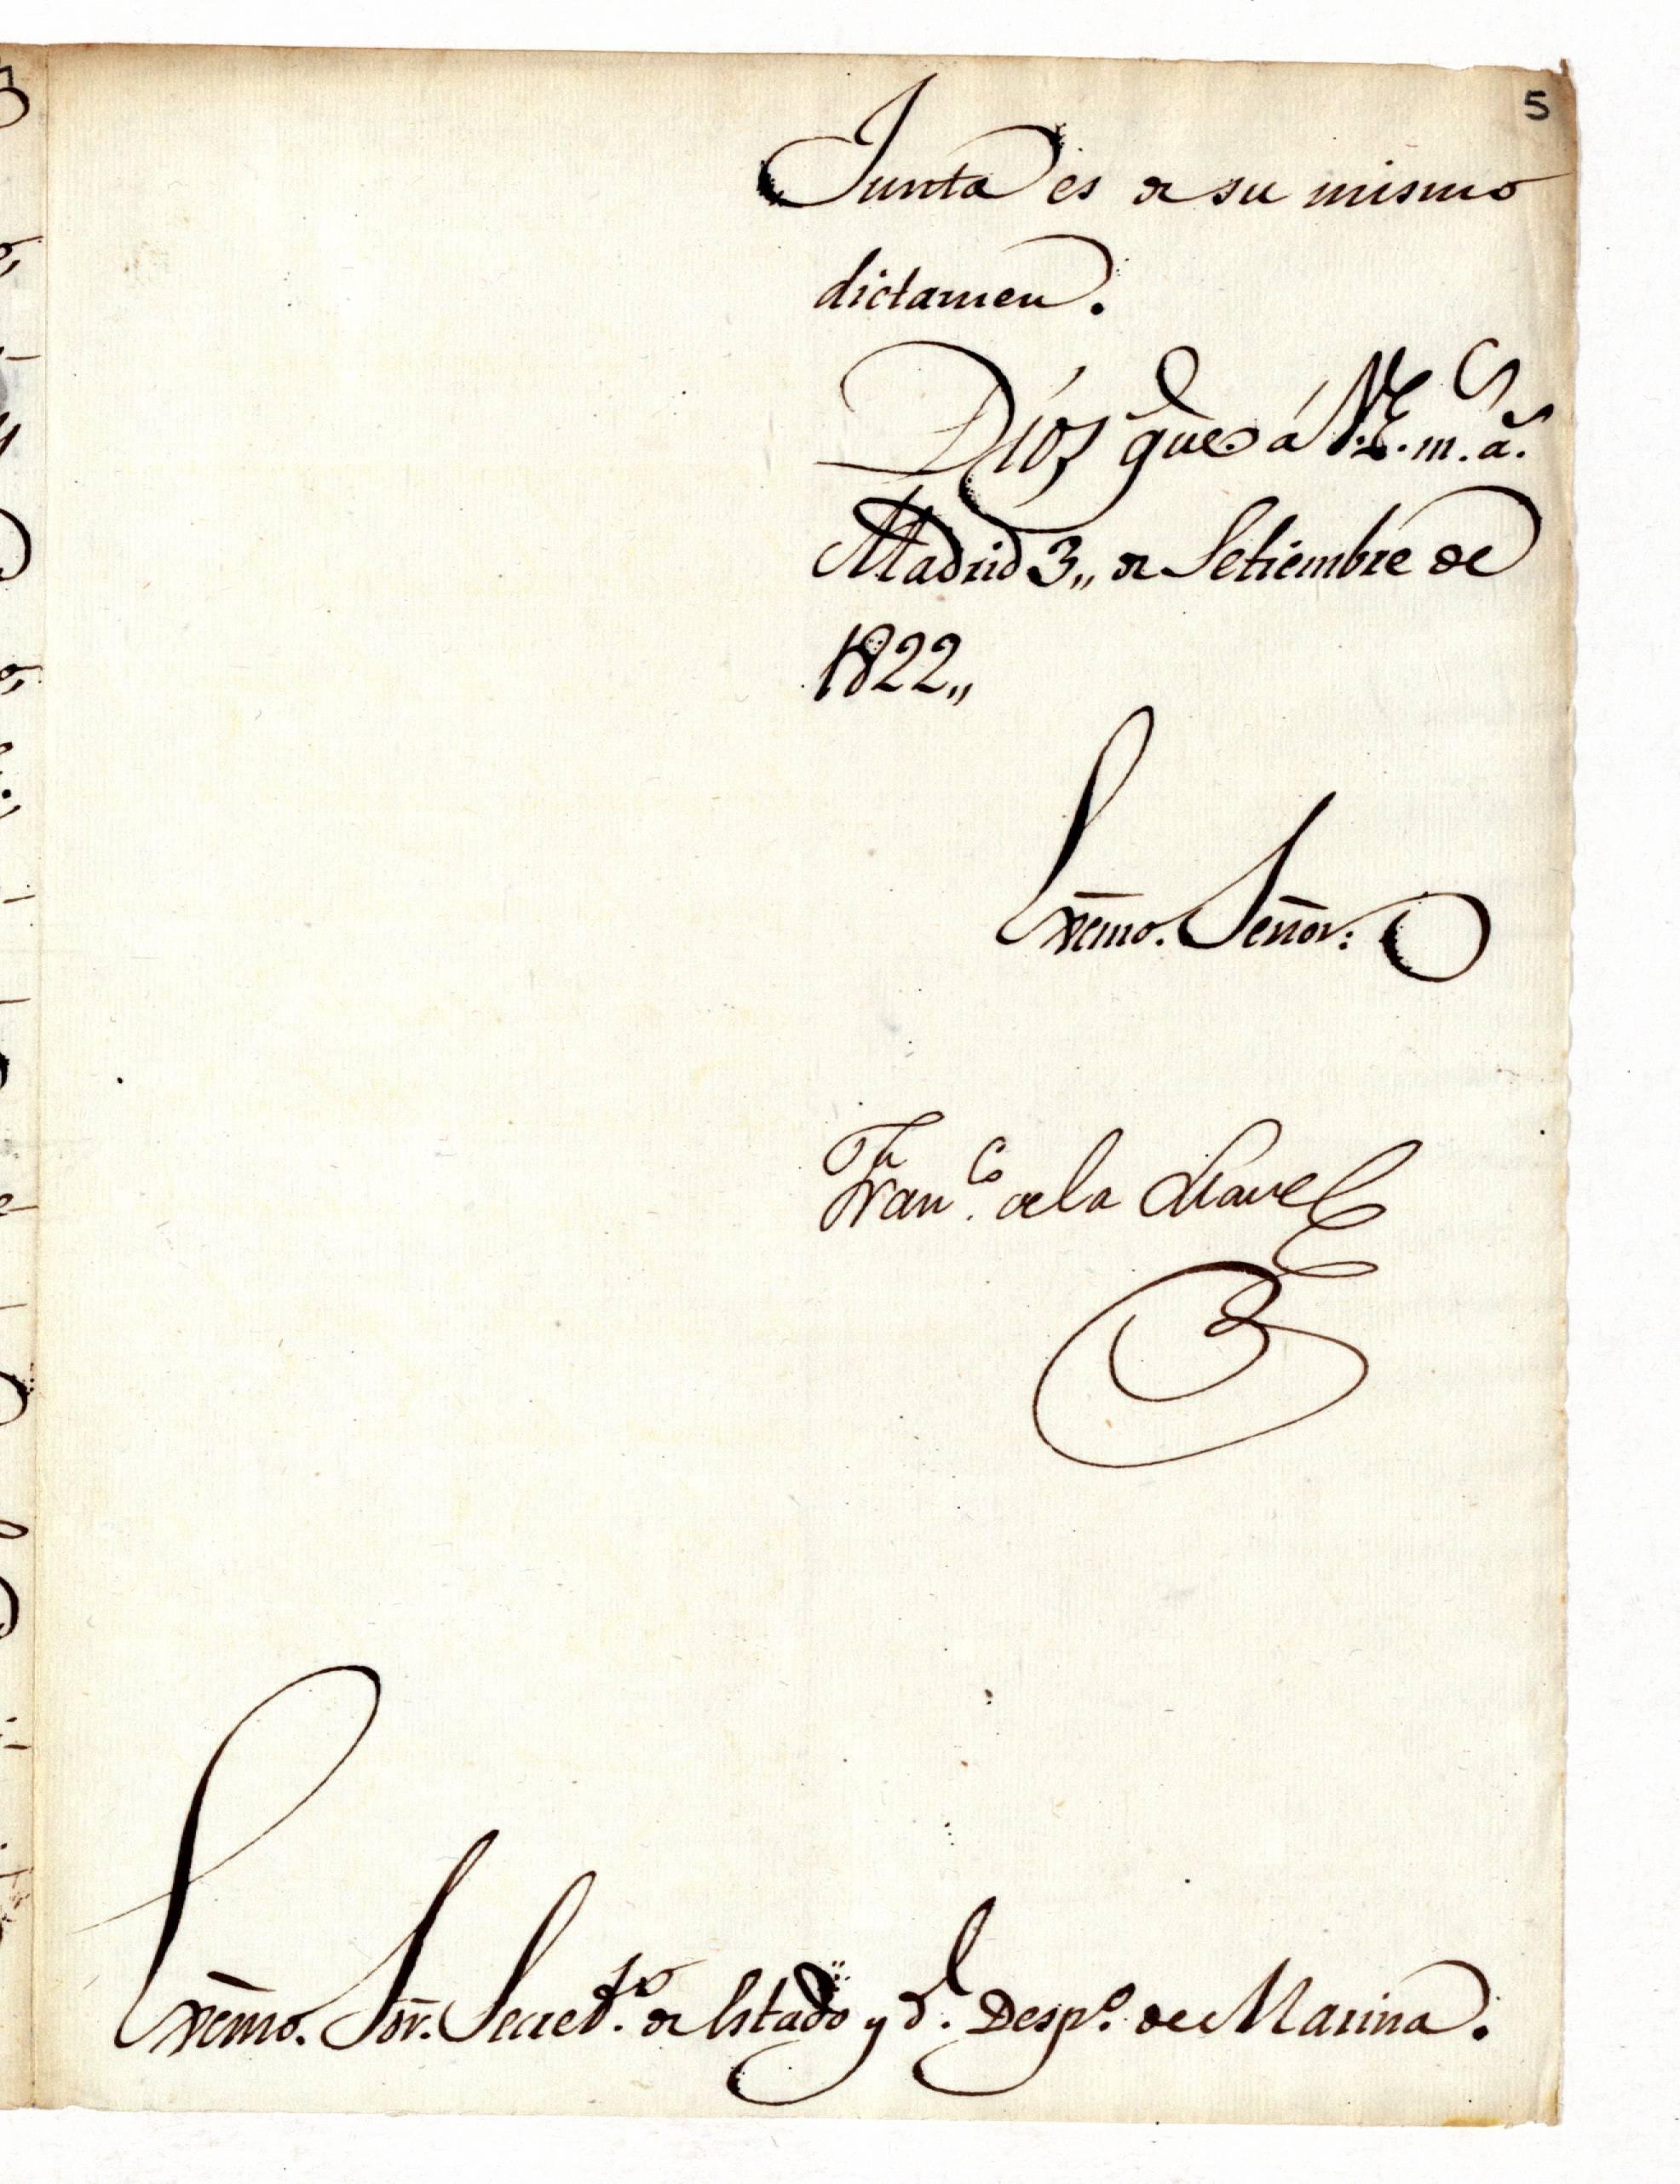 5
Junta es de su mismo
dictamen.
Dios gũe. á V.E. m.s a.s
Madrid 3,, de Setiembre de
1822,,
Exc̃mo. Señor:
Fran.co de la
Exc̃mo. Sõr. Secret.o de Estado y d.l Desp.o de Marina.